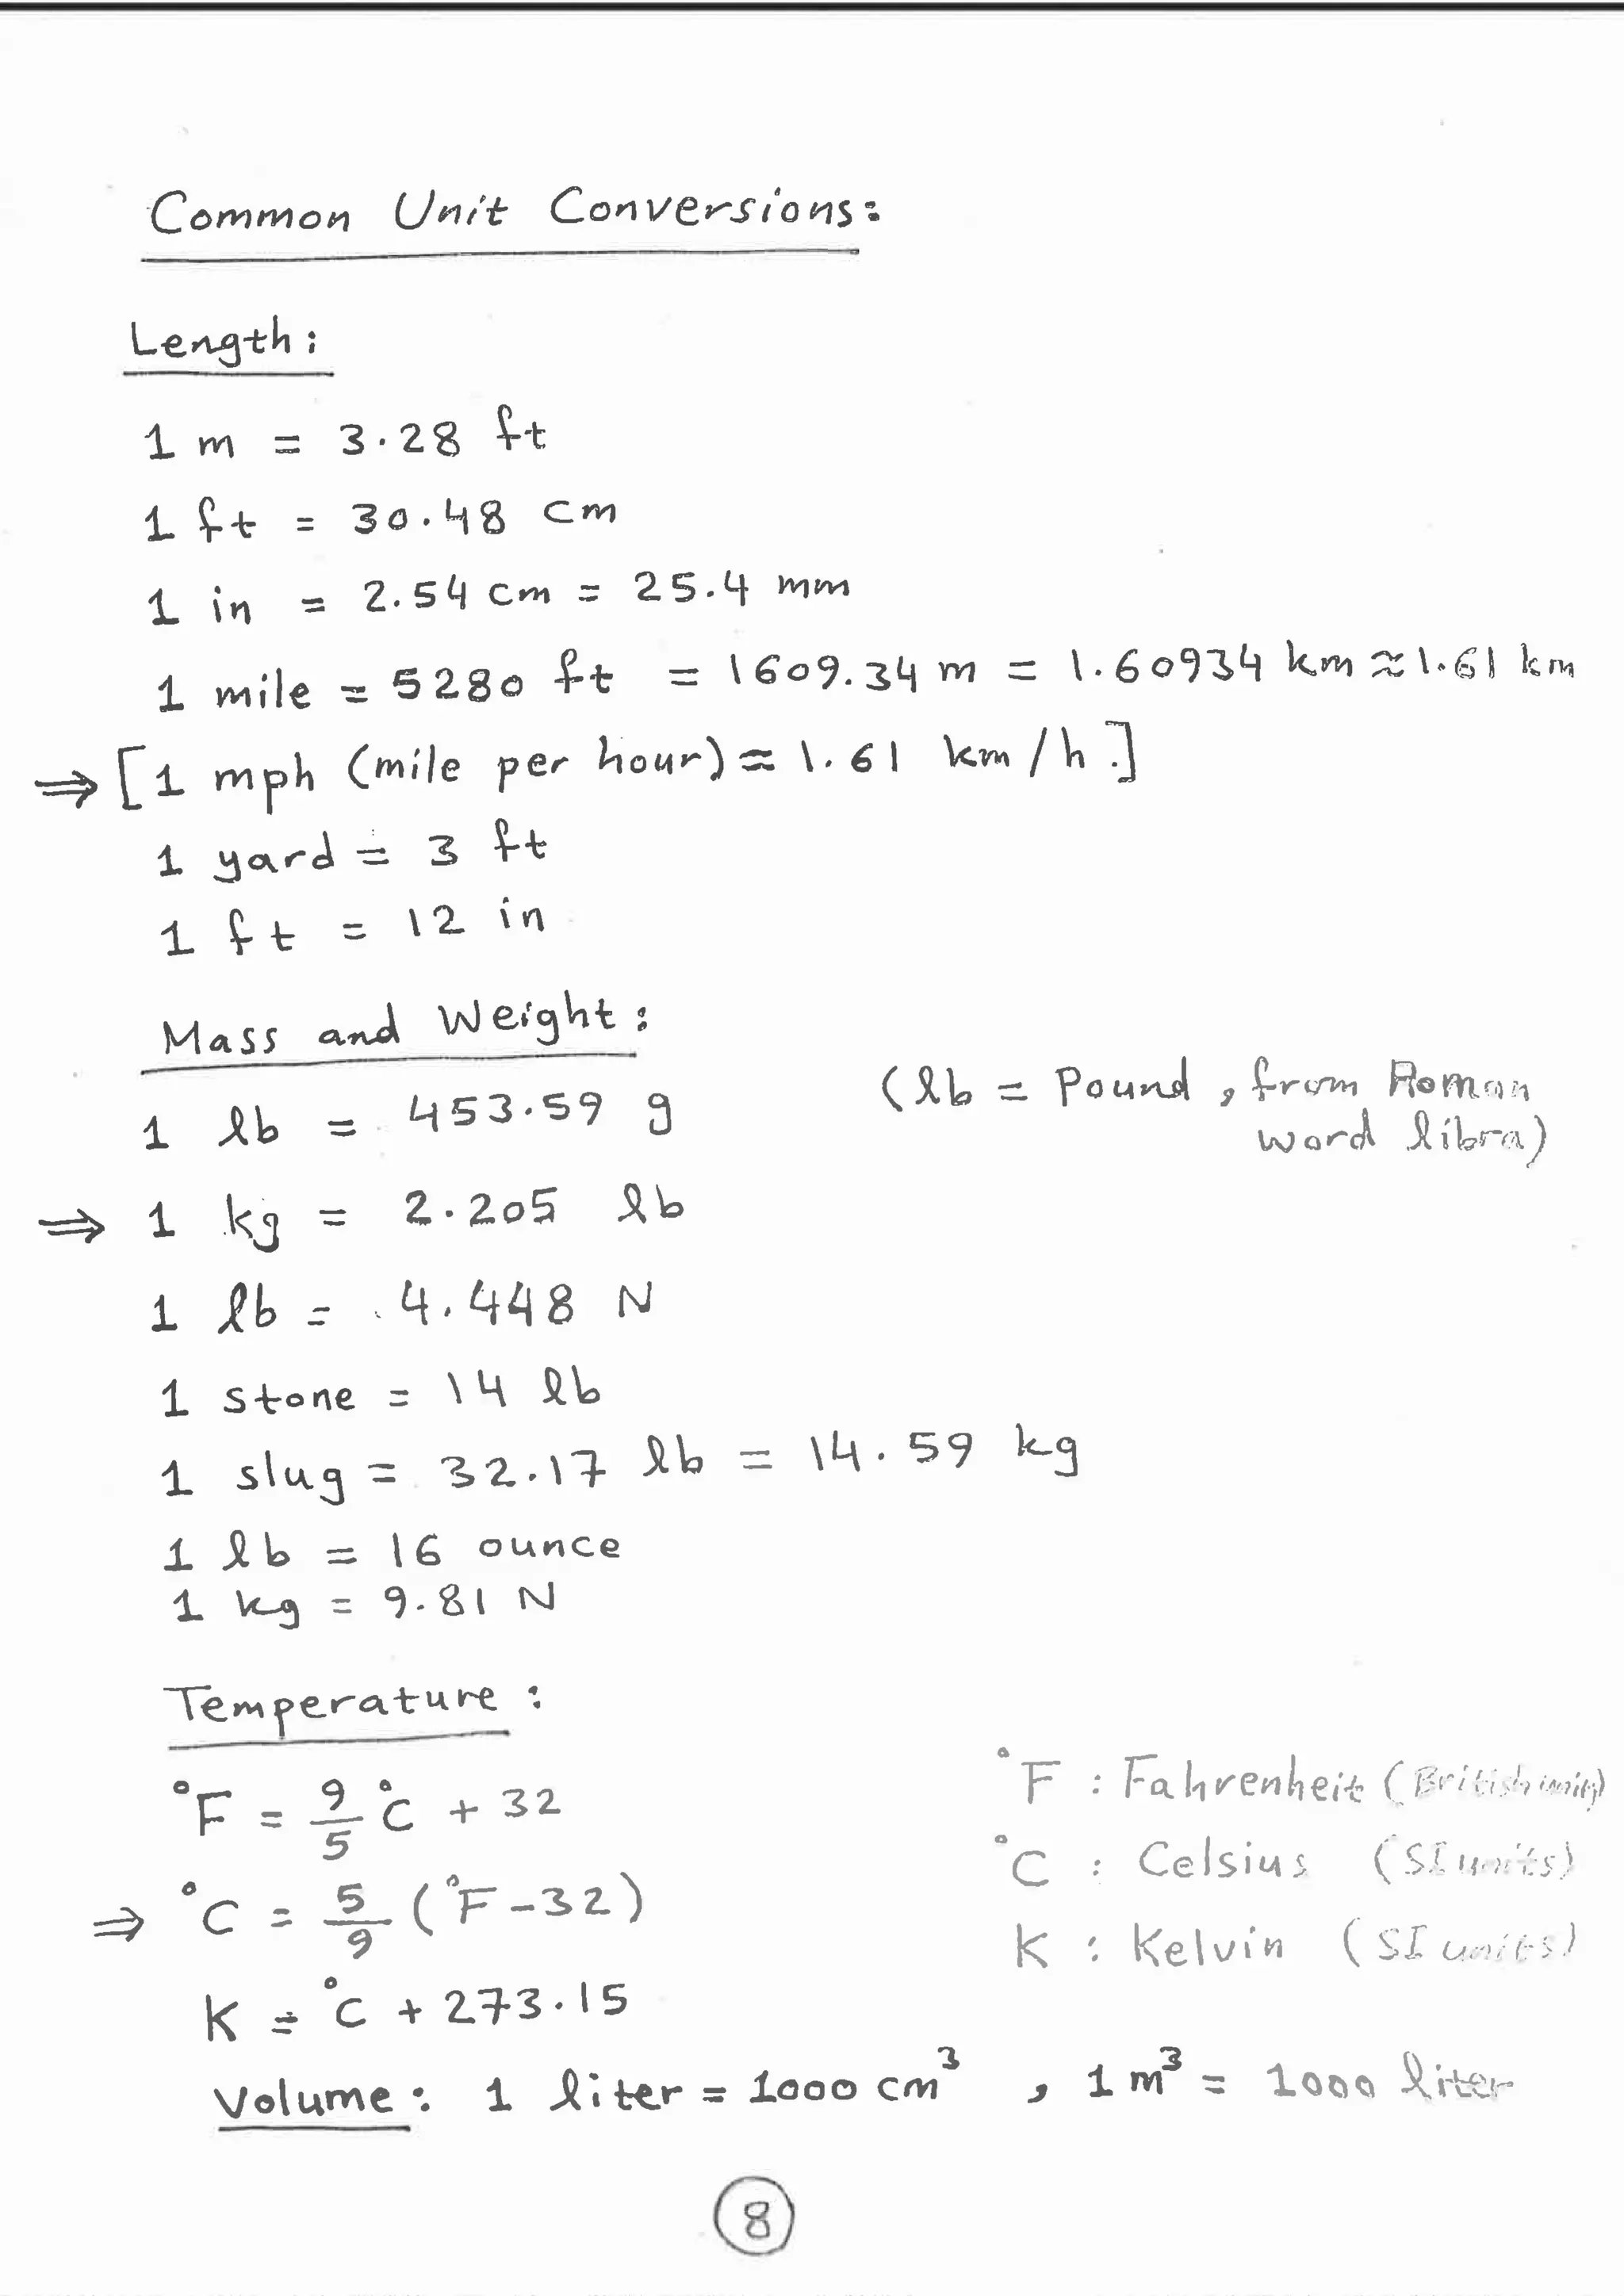 Common Unit Conversions:
Length:
1 m = 3.28 ft
1 ft = 30.48 cm
1 in = 2.54 cm = 25.4 mm
1 mile = 5280 ft = 1609.34 m = 1.60934 km ≈ 1.61 km
⇒ [1 mph (mile per hour) ≈ 1.61 km/h.]
1 yard = 3 ft
1 ft = 12 in
Mass and Weight:
1 lb = 453.59 g
(lb = Pound, from Roman
word libra)
⇒ 1 kg = 2.205 lb
1 lb = 4.448 N
1 stone = 14 lb
1 slug = 32.17 lb = 14.59 kg
1 lb = 16 ounce
1 kg = 9.81 N
Temperature:
°F = 9/5 °C + 32
°F : Fahrenheit (British unit)
⇒ °C = 5/9 (°F - 32)
°C : Celsius (SI units)
K = °C + 273.15
K : Kelvin (SI units)
Volume: 1 liter = 1000 cm³ , 1 m³ = 1000 liter
8